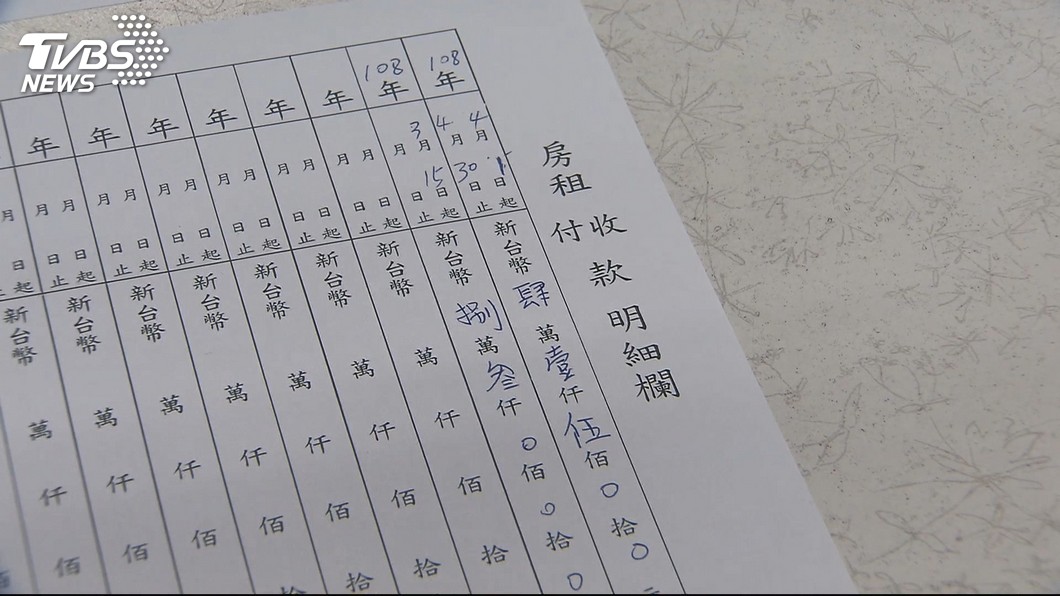 TVBS
NEWS
房租收付款明細欄
108年
4月1日起
4月30日止
新台幣肆萬壹仟伍佰0拾0
108年
3月15日起
月日止
新台幣捌萬叁仟0佰0拾0
年
月日起
月日止
新台幣萬仟佰拾
年
月日起
月日止
新台幣萬仟佰拾
年
月日起
月日止
新台幣萬仟佰拾
年
月日起
月日止
新台幣萬仟佰拾
年
月日起
月日止
新台幣萬仟佰
年
月日起
月日止
新台幣萬仟佰
月日起
止
新台幣萬仟佰